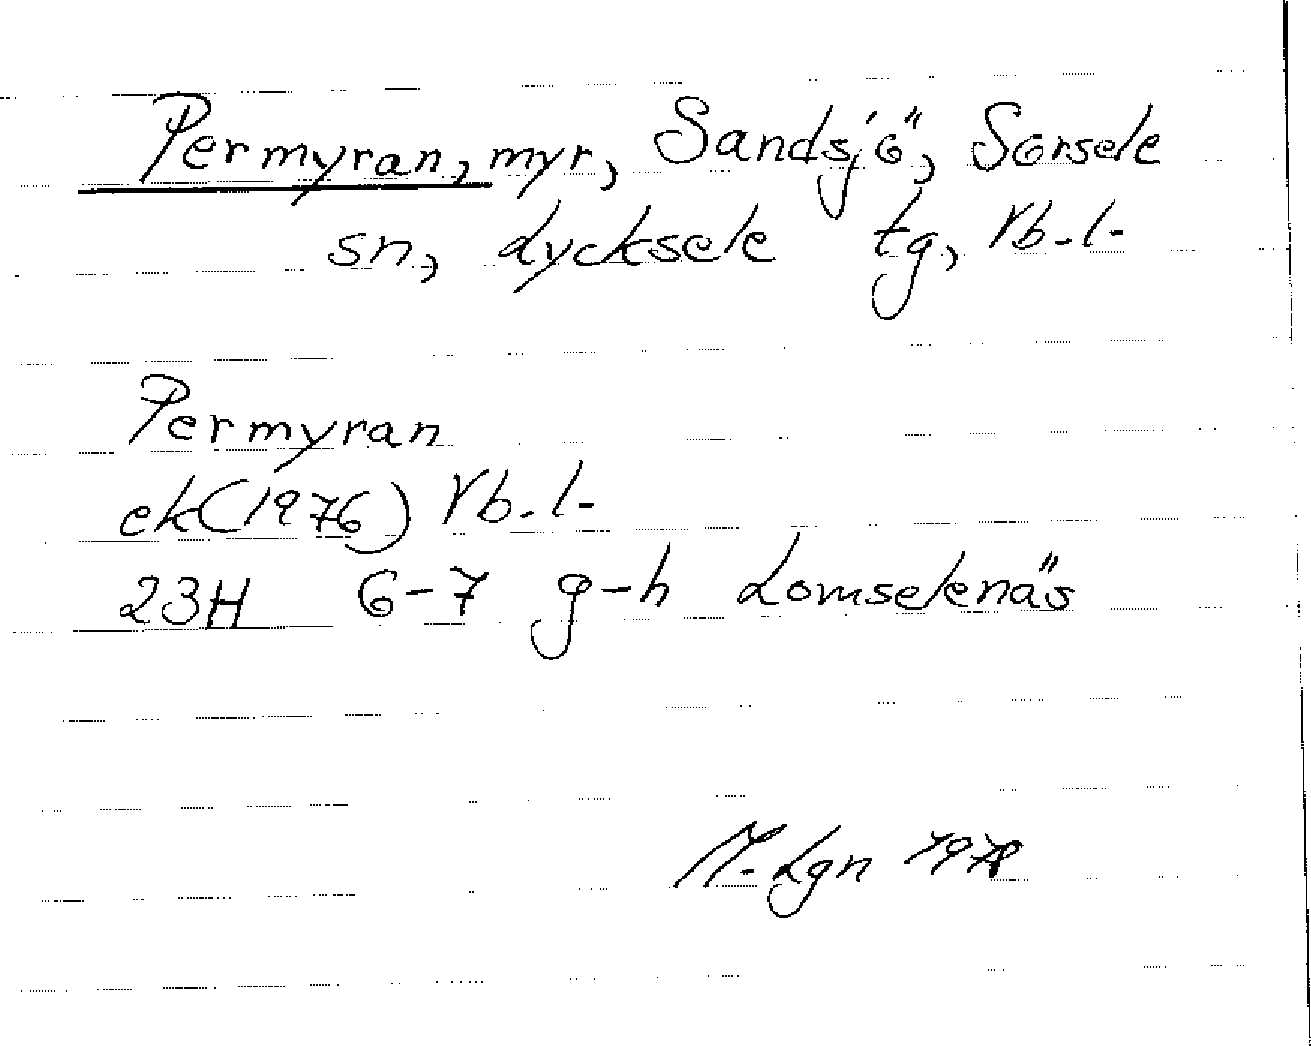 Permyran, myr, Sandsjö, Sorsele
sn, Lycksele tg, Vb.l.
Permyran
ek(1976) Vb.l.
23H 6-7 g-h Lomselenäs
M.Lgn 1978